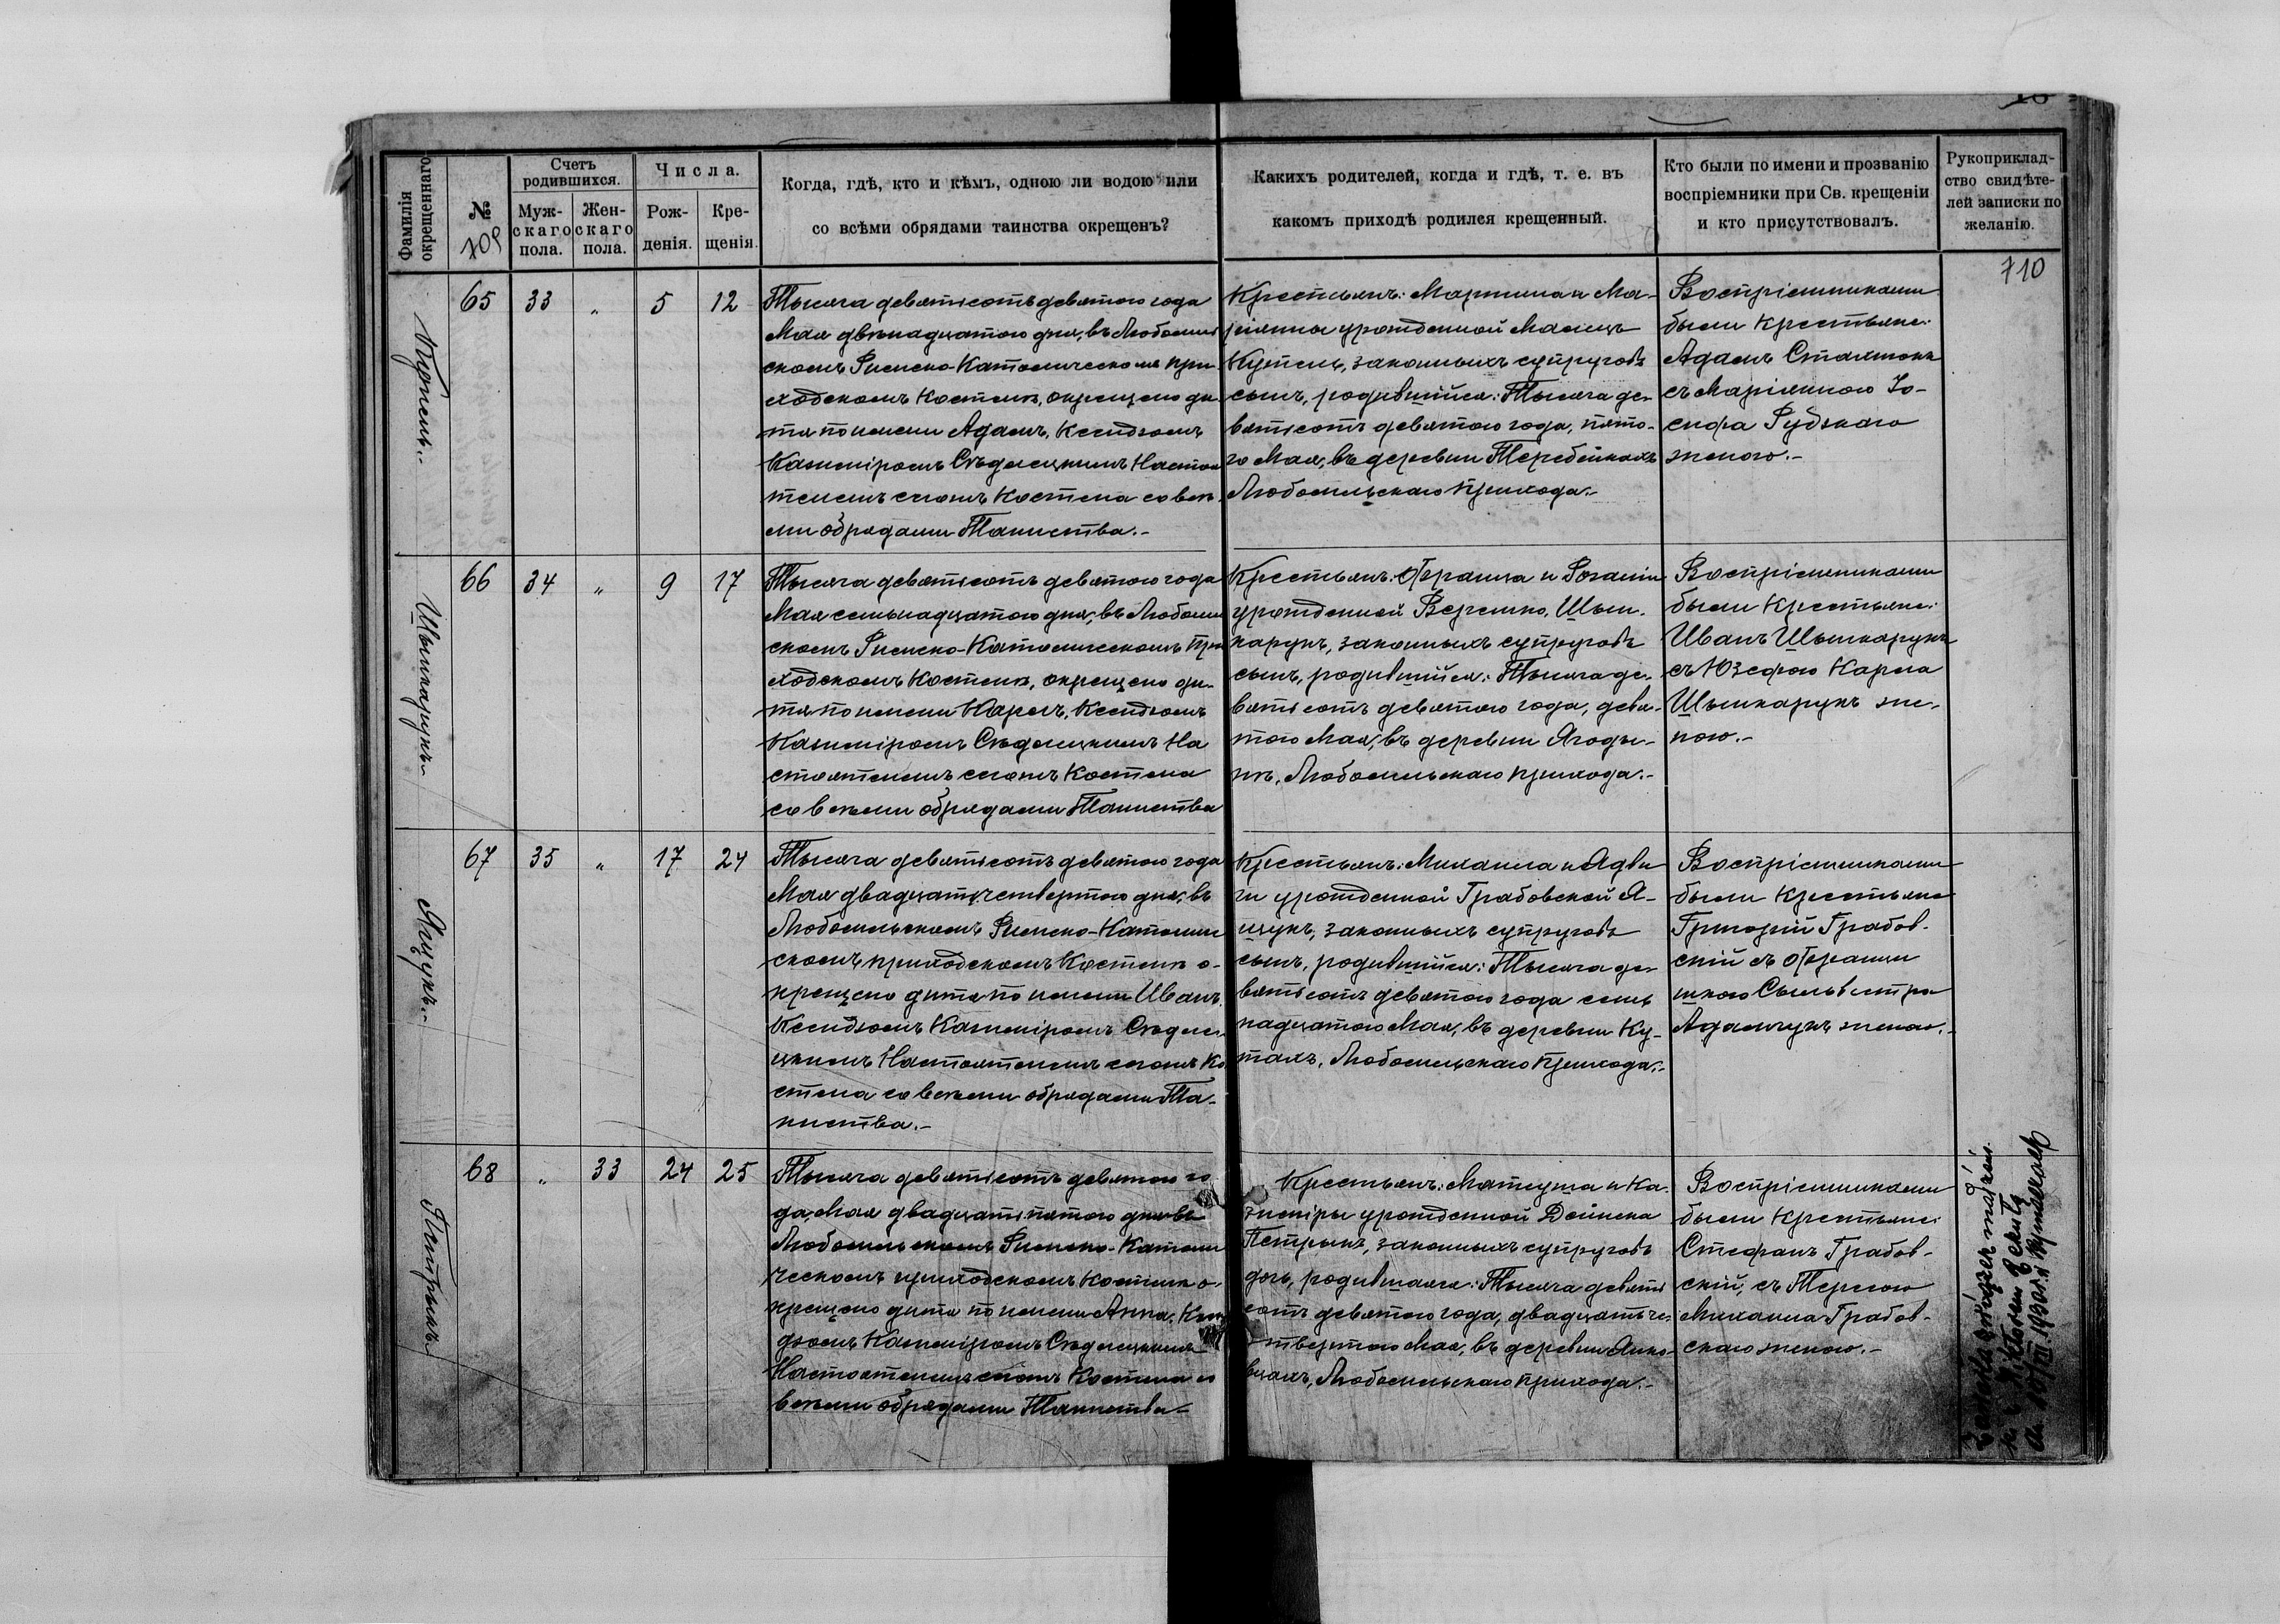 Фамилія окрещеннаго
№
709
Счетъ родившихся.
Муж-скаго пола.
Жен-скаго пола.
Числа.
Рож-денія.
Кре-щенія.
Когда, гдѣ, кто и кѣмъ, одною ли водою или
со всѣми обрядами таинства окрещенъ?
Какихъ родителей, когда и гдѣ, т. е. въ
какомъ приходѣ родился крещенный.
Кто были по имени и прозванію
воспріемники при Св. крещеніи
и кто присутствовалъ.
Рукоприклад-
ство свидѣте-
лей записки по
желанію.
710
65 33 „ 5 12
Тысяча девятьсотъ девятого года
Мая двѣнадцатого дня, въ Любомль
скомъ Римско-Католическомъ при
ходскомъ Костелѣ, окрещено ди
тя по имени Адамъ, Ксендзомъ
Казиміромъ Сѣдлецкимъ Настоя
телемъ сего Костела со всѣ
ми обрядами Таинства.-
Крестьянъ: Мартина и Ма-
ріанны урожденной Малецъ
законныхъ супруговъ
сынъ, родившійся: Тысяча де-
вятьсотъ девятого года, пято-
го Мая, въ деревни Теребейкахъ
Любомльскаго прихода.-
Воспріемниками
были Крестьяне:
Адамъ
съ Маріанною Іо-
сифа Рудзкаго
женою.-
66 34 „ 9 17
Шымкарукъ
Тысяча девятьсотъ девятого года
Мая семьнадцатого дня, въ Любомль
скомъ Римско-Католическомъ при
ходскомъ Костелѣ, окрещено ди-
тя по имени Карлъ, Ксендзомъ
Казиміромъ Сѣдлецкимъ На
стоятелемъ сего Костела
со всѣми обрядами Таинства
Крестьянъ: Франца и Розаліи
урожденной Веремко, Шым-
карукъ, законныхъ супруговъ
сынъ, родившійся: Тысяча де-
вятьсотъ девятого года, девя-
того Мая, въ деревни Ягоды-
нѣ, Любомльскаго прихода.-
Воспріемниками
были Крестьяне:
Иванъ Шымкарукъ
съ Юзефою Карла
Шымкарукъ же-
ною.-
67 35 „ 17 24
Ящукъ.-
Тысяча девятьсотъ девятого года
Мая двадцать четвертого дня, въ
Любомльскомъ Римско-Католиче
скомъ приходскомъ Костелѣ о-
крещено дитя по имени Иванъ,
Ксендзомъ Казиміромъ Сѣдле-
цкимъ Настоятелемъ сего Ко
стела со всѣми обрядами Та-
инства.-
Крестьянъ: Михаила и Ядви
ги урожденной Грабовской Я-
щукъ, законныхъ супруговъ
сынъ, родившійся: Тысяча де-
вятьсотъ девятого года семь
надцатого Мая, въ деревни Ку-
тахъ, Любомльскаго прихода.-
Воспріемниками
были Крестьяне
Григорій Грабов-
скій съ Францы
шкою Сыльвестра
Адамчукъ женою.-
68 „ 33 24 25
Петрыкъ
Тысяча девятьсотъ девятого го
да, Мая двадцать пятого дня въ
Любомльскомъ Римско-Католи
ческомъ приходскомъ Костелѣ о-
крещено дитя по имени Анна, Ксен
дзомъ Казиміромъ Сѣдлецкимъ
Настоятелемъ сего Костела со
всѣми обрядами Таинства-
Крестьянъ: Матеуша и Ка-
зиміры урожденной Дейнека
Петрыкъ, законныхъ супруговъ
дочь, родившаяся: Тысяча девять
сотъ девятого года, двадцать че
твертого Мая, въ деревни Янко-
вцахъ, Любомльскаго прихода.-
Воспріемниками
были Крестьяне:
Стефанъ Грабов-
скій, съ Терезою
Михаила Грабов-
скаго женою.-